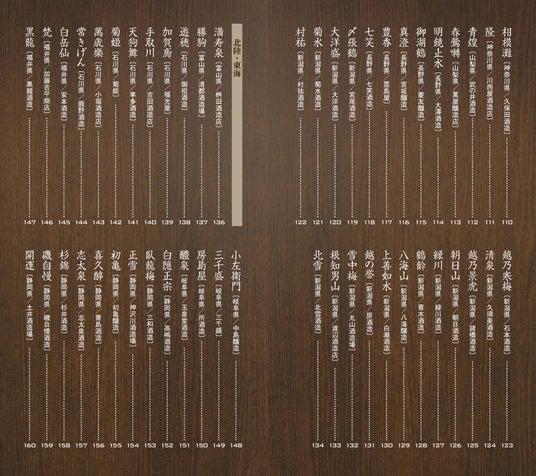 相模灘 [神奈川県/久保田酒造] 110
隆 [神奈川県/川西屋酒造店] 111
青煌 [山梨県/武の井酒造] 112
春鶯囀 [山梨県/萬屋醸造店] 113
明鏡止水 [長野県/大澤酒造] 114
御湖鶴 [長野県/菱友醸造] 115
真澄 [長野県/宮坂醸造] 116
豊香 [長野県/豊島屋] 117
七笑 [長野県/七笑酒造] 118
〆張鶴 [新潟県/宮尾酒造] 119
大洋盛 [新潟県/大洋酒造] 120
菊水 [新潟県/菊水酒造] 121
村祐 [新潟県/村祐酒造] 122
越乃寒梅 [新潟県/石本酒造] 123
清泉 [新潟県/久須美酒造] 124
越乃景虎 [新潟県/諸橋酒造] 125
朝日山 [新潟県/朝日酒造] 126
緑川 [新潟県/緑川酒造] 127
鶴齢 [新潟県/青木酒造] 128
八海山 [新潟県/八海醸造] 129
上善如水 [新潟県/白瀧酒造] 130
越の誉 [新潟県/原酒造] 131
雪中梅 [新潟県/丸山酒造場] 132
根知男山 [新潟県/渡辺酒造店] 133
北雪 [新潟県/北雪酒造] 134
北陸・東海
満寿泉 [富山県/桝田酒造店] 136
勝駒 [富山県/清都酒造場] 137
遊穂 [石川県/御祖酒造] 138
加賀鳶 [石川県/福光屋] 139
手取川 [石川県/吉田酒造店] 140
天狗舞 [石川県/車多酒造] 141
菊姫 [石川県/菊姫] 142
萬歳楽 [石川県/小堀酒造店] 143
常きげん [石川県/鹿野酒造] 144
白岳仙 [福井県/安本酒造] 145
梵 [福井県/加藤吉平商店] 146
黒龍 [福井県/黒龍酒造] 147
小左衛門 [岐阜県/中島醸造] 148
三千盛 [岐阜県/三千盛] 149
房島屋 [岐阜県/所酒造] 150
醴泉 [岐阜県/玉泉堂酒造] 151
白隠正宗 [静岡県/高嶋酒造] 152
臥龍梅 [静岡県/三和酒造] 153
正雪 [静岡県/神沢川酒造場] 154
初亀 [静岡県/初亀醸造] 155
喜久醉 [静岡県/青島酒造] 156
志太泉 [静岡県/志太泉酒造] 157
杉錦 [静岡県/杉井酒造] 158
磯自慢 [静岡県/磯自慢酒造] 159
開運 [静岡県/土井酒造場] 160